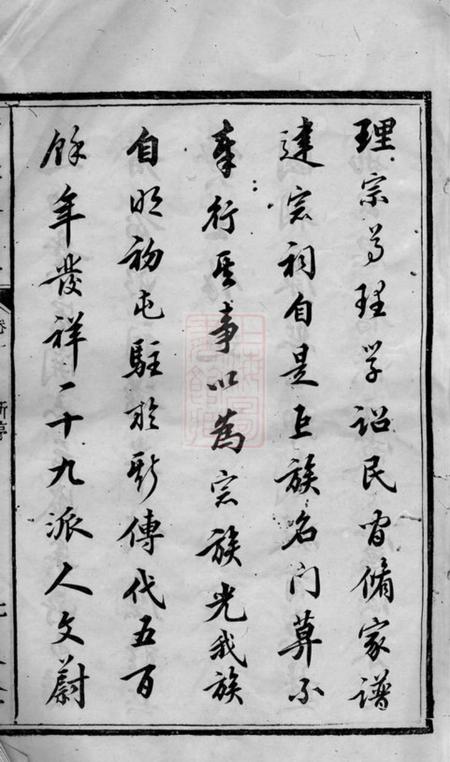 理宗尊理学诏民官脩家谱
建宗祠自是巨族名门莫不
奉行其事以为宗族光我族
自明初屯驻於新傳代五百
餘年發祥一十九派人文蔚
卷一
新亭